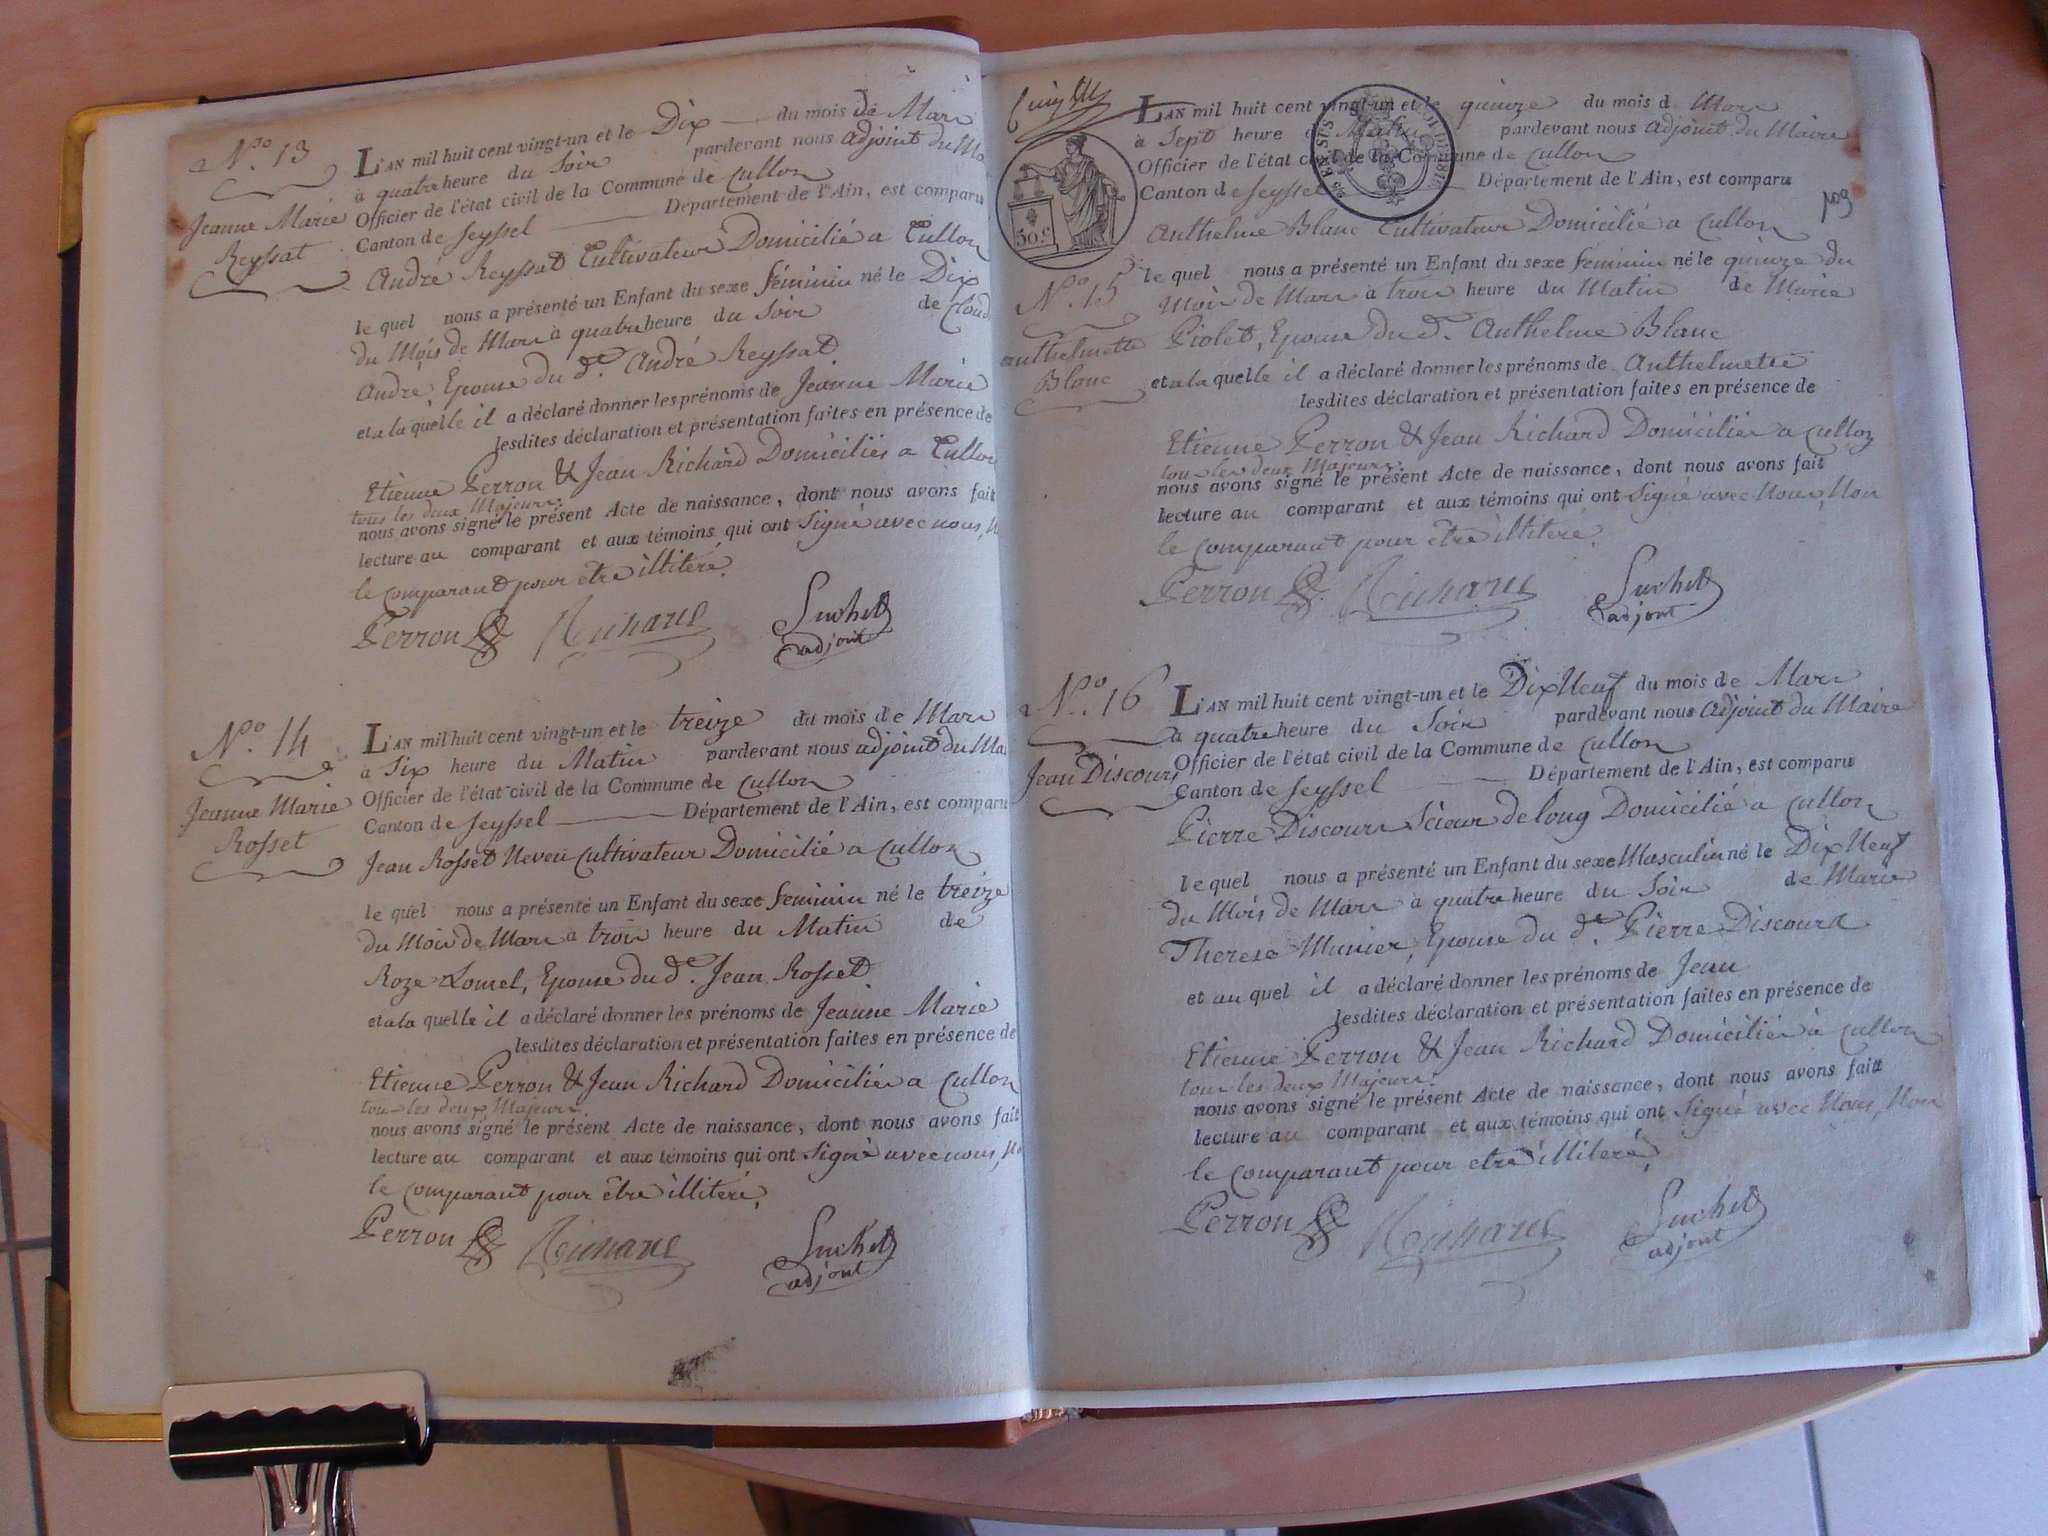 N.o 13
Jeanne Marie
Reyssat
L'AN mil huit cent vingt-un et le Dix du mois de Mars
à quatre heure du Soir pardevant nous adjoint du
Officier de l'état civil de la Commune de Culloz
Canton de Seyssel Département de l'Ain, est comparu
André Reyssat Cultivateur Domicilié a Culloz
le quel nous a présenté un Enfant du sexe féminin né le Dix
du Mois de Mars à quatre heure du Soir de
André, Epouse du d.t André Reyssat
et a la quelle il a déclaré donner les prénoms de Jeanne Marie
lesdites déclaration et présentation faites en présence de
Etienne Perron & Jean Richard Domiciliés a Culloz
tous les deux Majeurs.
nous avons signé le présent Acte de naissance, dont nous avons fait
lecture au comparant et aux témoins qui ont Signé avec nous,
le comparant pour être illiteré.
Perron Richard Suchet
adjoint
N.o 14
Jeanne Marie
Rosset
L'AN mil huit cent vingt-un et le treize du mois de Mars
à Six heure du Matin pardevant nous adjoint du
Officier de l'état civil de la Commune de Culloz
Canton de Seyssel Département de l'Ain, est comparu
Jean Rosset Neveu Cultivateur Domicilié a Culloz
le quel nous a présenté un Enfant du sexe féminin né le treize
du Mois de Mars à trois heure du Matin de
Roze Lomel, Epouse du d.t Jean Rosset
et a la quelle il a déclaré donner les prénoms de Jeanne Marie
lesdites déclaration et présentation faites en présence de
Etienne Perron & Jean Richard Domiciliés a Culloz
tous les deux Majeurs
nous avons signé le présent Acte de naissance, dont nous avons fait
lecture au comparant et aux témoins qui ont Signé avec nous,
le comparant pour être illiteré.
Perron Richard Suchet
adjoint
50.c
N.o 15
anthelmette
Blanc
L'AN mil huit cent vingt-un et le quinze du mois d Mars
à Sept heure Matin pardevant nous adjoint du Maire
Officier de l'état civil de la Commune de Culloz
Canton de Seyssel Département de l'Ain, est comparu
Anthelme Blanc Cultivateur Domicilié a Culloz
le quel nous a présenté un Enfant du sexe féminin né le quinze du
Mois de Mars à trois heure du Matin de Marie
Piolet, Epouse du d.t Anthelme Blanc
et a la quelle il a déclaré donner les prénoms de Anthelmette
lesdites déclaration et présentation faites en présence de
Etienne Perron & Jean Richard Domiciliés a Culloz
tous les deux Majeurs.
nous avons signé le présent Acte de naissance, dont nous avons fait
lecture au comparant et aux témoins qui ont Signé avec Nous, Non
le comparant pour être illiteré.
Perron Richard Suchet
adjont
N.o 16
Jean Discours
L'AN mil huit cent vingt-un et le Dix Neuf du mois de Mars
à quatre heure du Soir pardevant nous adjoint du Maire
Officier de l'état civil de la Commune de Culloz
Canton de Seyssel Département de l'Ain, est comparu
Pierre Discours Scieur de long Domicilié a Culloz
le quel nous a présenté un Enfant du sexe Masculin né le Dix Neuf
du Mois de Mars à quatre heure du Soir de Marie
Therese Munier, Epouse du d.t Pierre Discours
et au quel il a déclaré donner les prénoms de Jean
lesdites déclaration et présentation faites en présence de
Etienne Perron & Jean Richard Domiciliés à Culloz
tous les deux Majeurs.
nous avons signé le présent Acte de naissance, dont nous avons fait
lecture au comparant et aux témoins qui ont Signé avec Nous, Non
le comparant pour etre illiteré,
Perron Richard Suchet
adjont